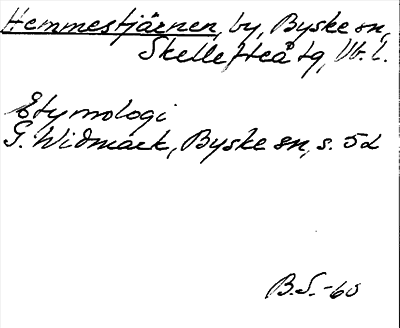 Hemmestjärnen, by, Byske sn,
Skellefteå tg, Vb. l.
Etymologi
G. Widmark, Byske sn, s. 52
B.S.-60